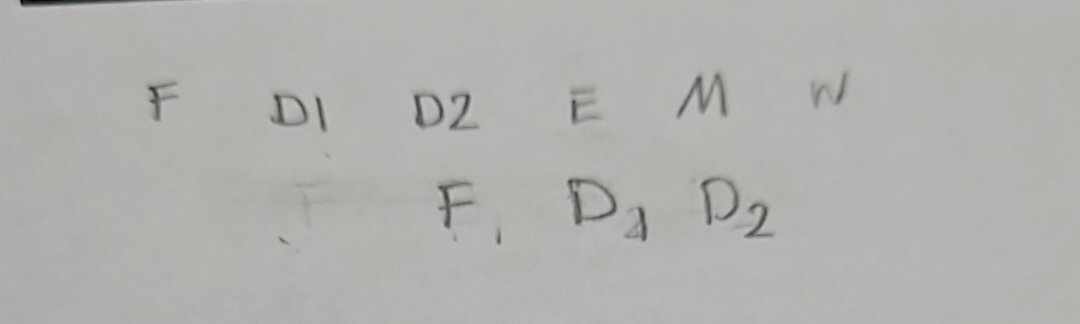 F D1 D2 E M W
F, D1 D2